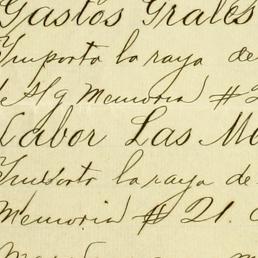 Gastos Grales
Importa la raya de
Memoria # 2
Labor Las M
Importa la raya de
Memoria # 21.